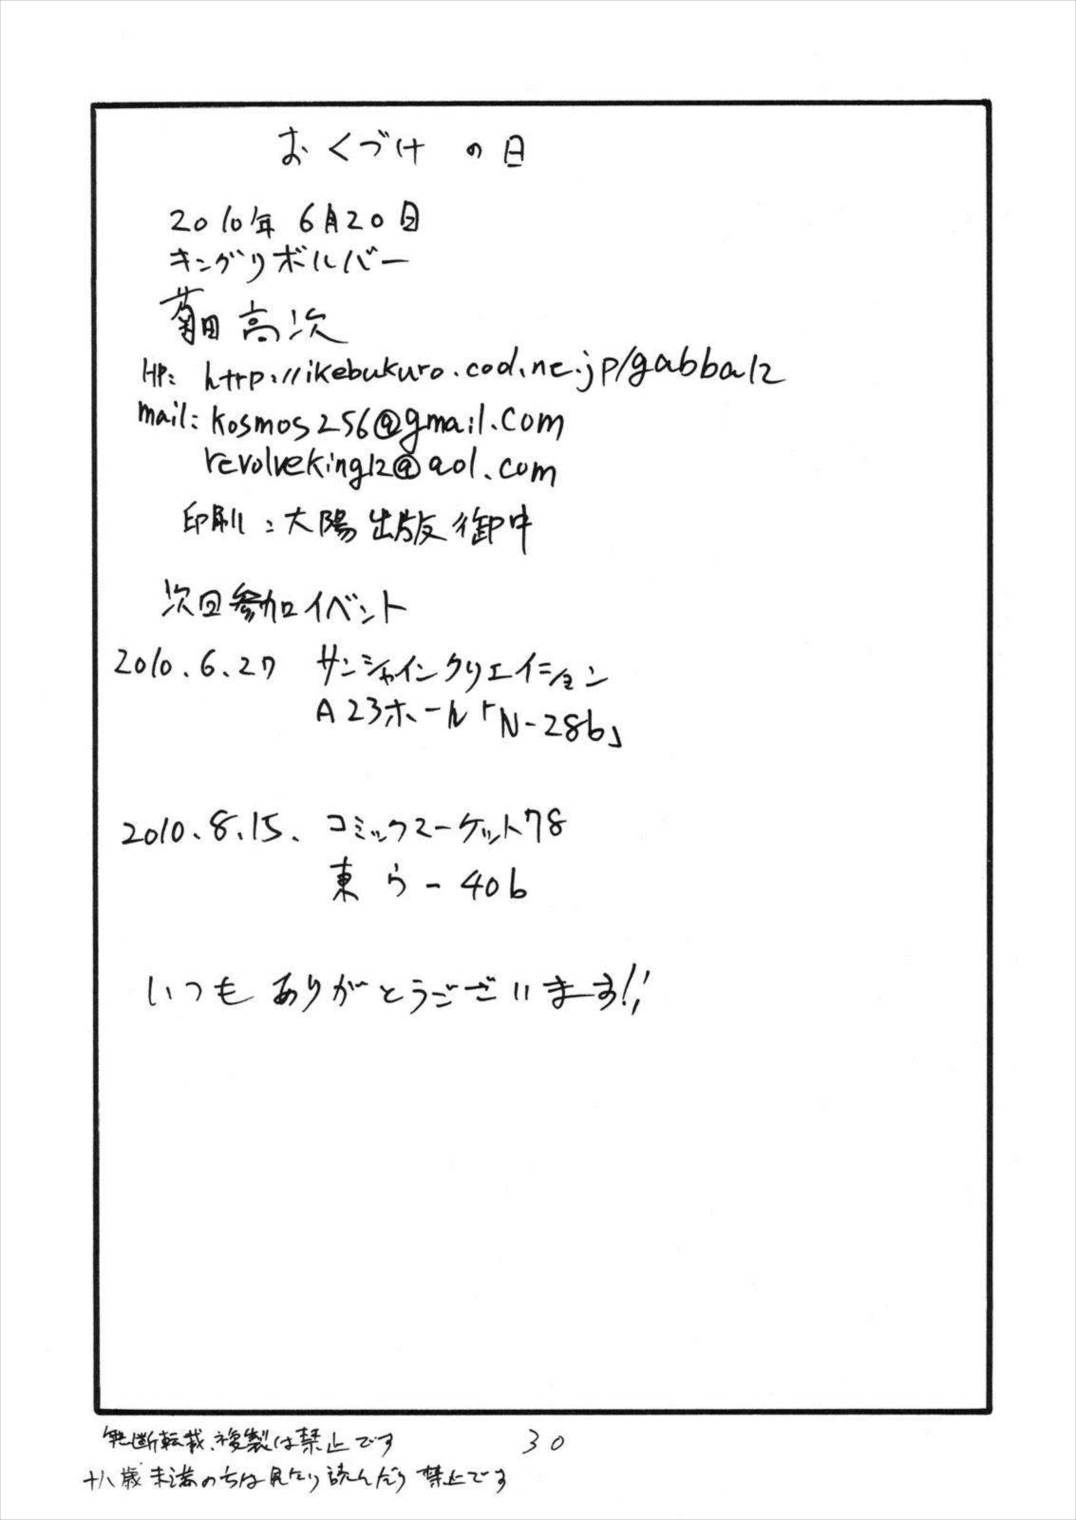 おくづけ の日
2010年 6月20日
キングリボルバー
菊田高次
HP: http://ikebukuro.cool.ne.jp/gabba12
mail: kosmos256@gmail.com
revolveking12@aol.com
印刷:大陽出版 御中
次回参加イベント
2010.6.27 サンシャインクリエイション
A23ホール「N-28b」
2010.8.15. コミックマーケット78
東 う-40b
いつもありがとうございます!!
無断転載、複製は禁止です
30
十八歳未満のちは見たり読んだり禁止です